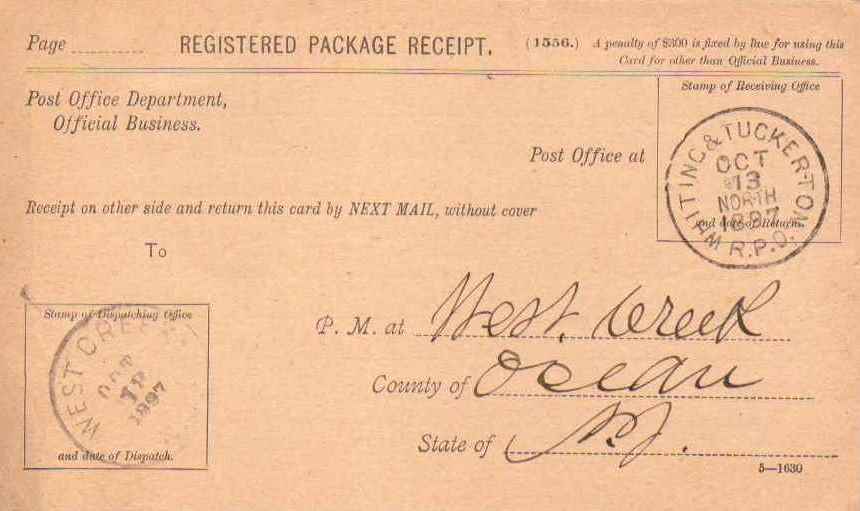 Page REGISTERED PACKAGE RECEIPT. (1556.) A penalty of $300 is fixed by law for using this
Card for other than Official Business.
Post Office Department,
Official Business.
Stamp of Receiving Office
WHITING & TUCKERTON
OCT
13
NORTH
1897
R.P.O.
and date of Return.
Post Office at
Receipt on other side and return this card by NEXT MAIL, without cover
To
Stamp of Dispatching Office
WEST CREEK
OCT
1897
and date of Dispatch.
P. M. at West Creek
County of Ocean
State of N.J.
5—1630